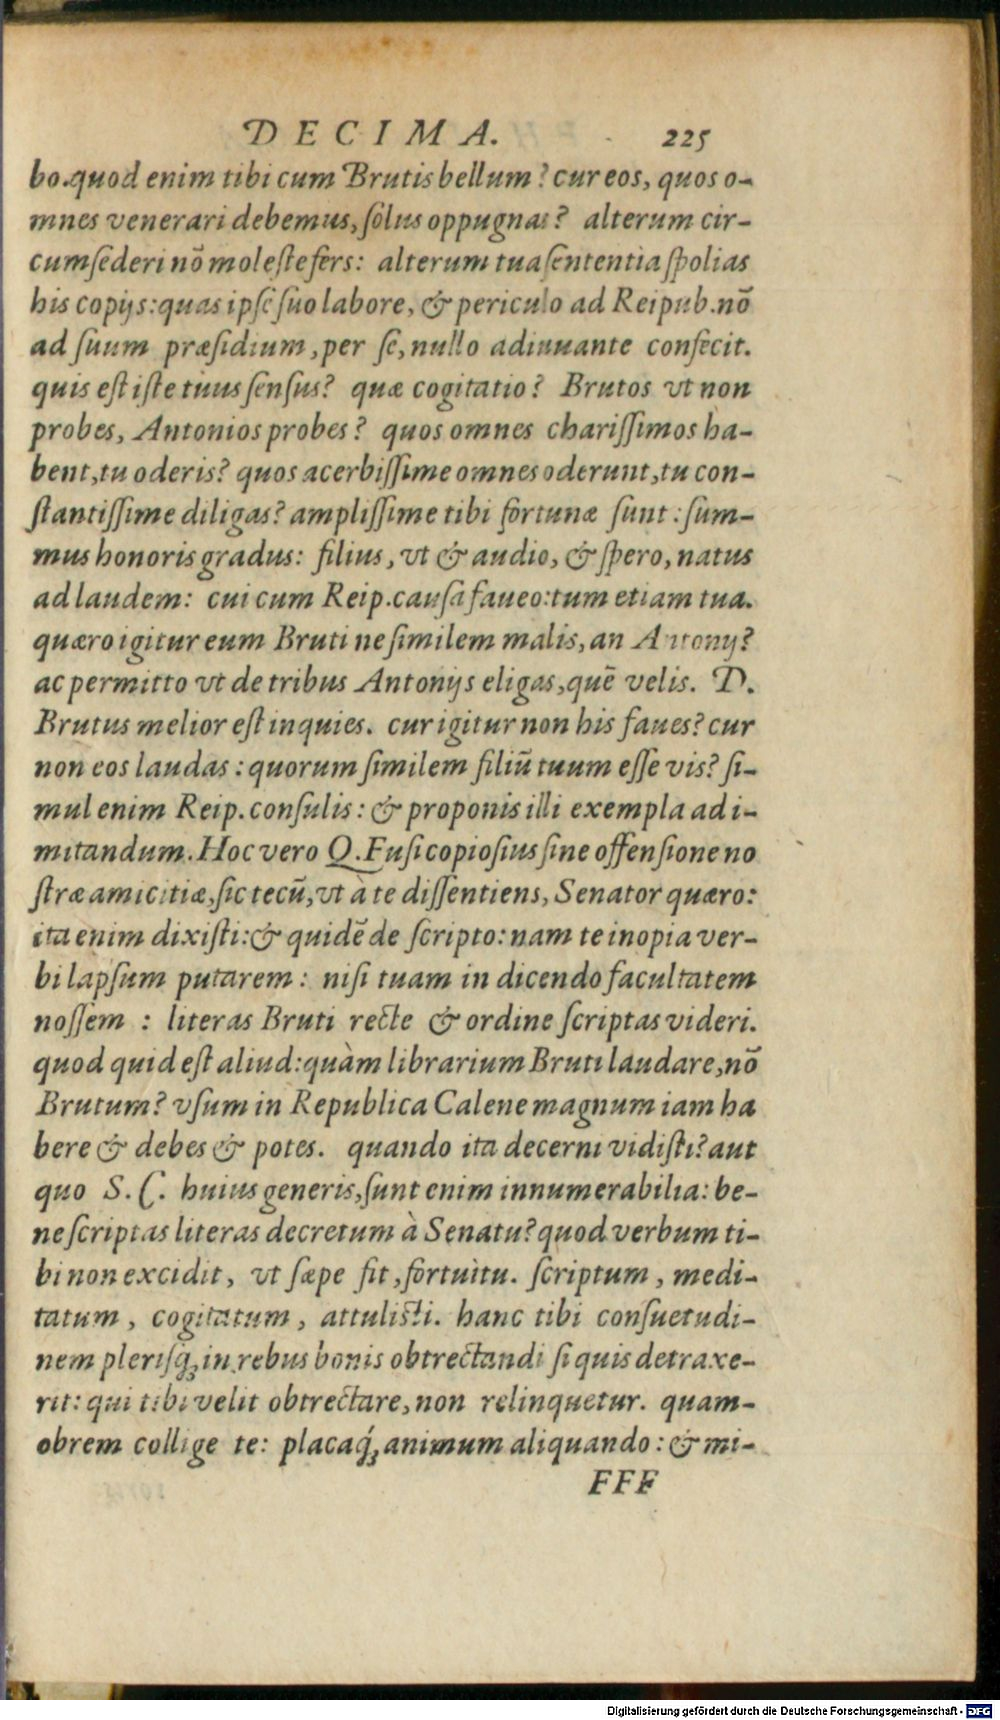 DECIMA. 225
bo.quod enim tibi cum Brutis bellum? cur eos, quos o-
mnes venerari debemus, ſolus oppugnas? alterum cir-
cumſederi nõ moleſte fers: alterum tua ſententia ſpolias
his copijs: quas ipſe ſuo labore, & periculo ad Reipub. nõ
ad ſuum præſidium, per ſe, nullo adiuuante confecit.
quis eſt iſte tuus ſenſus? quæ cogitatio? Brutos vt non
probes, Antonios probes? quos omnes chariſſimos ha-
bent, tu oderis? quos acerbiſſime omnes oderunt, tu con-
ſtantiſſime diligas? ampliſſime tibi fortunæ ſunt: ſum-
mus honoris gradus: filius, vt & audio, & ſpero, natus
ad laudem: cui cum Reip. cauſa faueo: tum etiam tua.
quæro igitur eum Bruti ne ſimilem malis, an Antonij?
ac permitto vt de tribus Antonijs eligas, quẽ velis. D.
Brutus melior eſt inquies. cur igitur non his faues? cur
non eos laudas: quorum ſimilem filiũ tuum eſſe vis? ſi-
mul enim Reip. conſulis: & proponis illi exempla ad i-
mitandum. Hoc vero Q. Fuſi copioſius ſine offenſione no
ſtræ amicitiæ, ſic tecũ, vt à te diſſentiens, Senator quæro:
ita enim dixiſti: & quidẽ de ſcripto: nam te inopia ver-
bi lapſum putarem: niſi tuam in dicendo facultatem
noſſem : literas Bruti recte & ordine ſcriptas videri.
quod quid eſt aliud: quàm librarium Bruti laudare, nõ
Brutum? vſum in Republica Calene magnum iam ha
bere & debes & potes. quando ita decerni vidiſti? aut
quo S. C. huius generis, ſunt enim innumerabilia: be-
ne ſcriptas literas decretum à Senatu? quod verbum ti-
bi non excidit, vt ſæpe fit, fortuitu. ſcriptum, medi-
tatum, cogitatum, attulisti. hanc tibi conſuetudi-
nem pleriſq́; in rebus bonis obtrectandi ſi quis detraxe-
rit: qui tibi velit obtrectare, non relinquetur. quam-
obrem collige te: placaq́; animum aliquando: & mi-
FFF
Digitalisierung gefördert durch die Deutsche Forschungsgemeinschaft - DFG